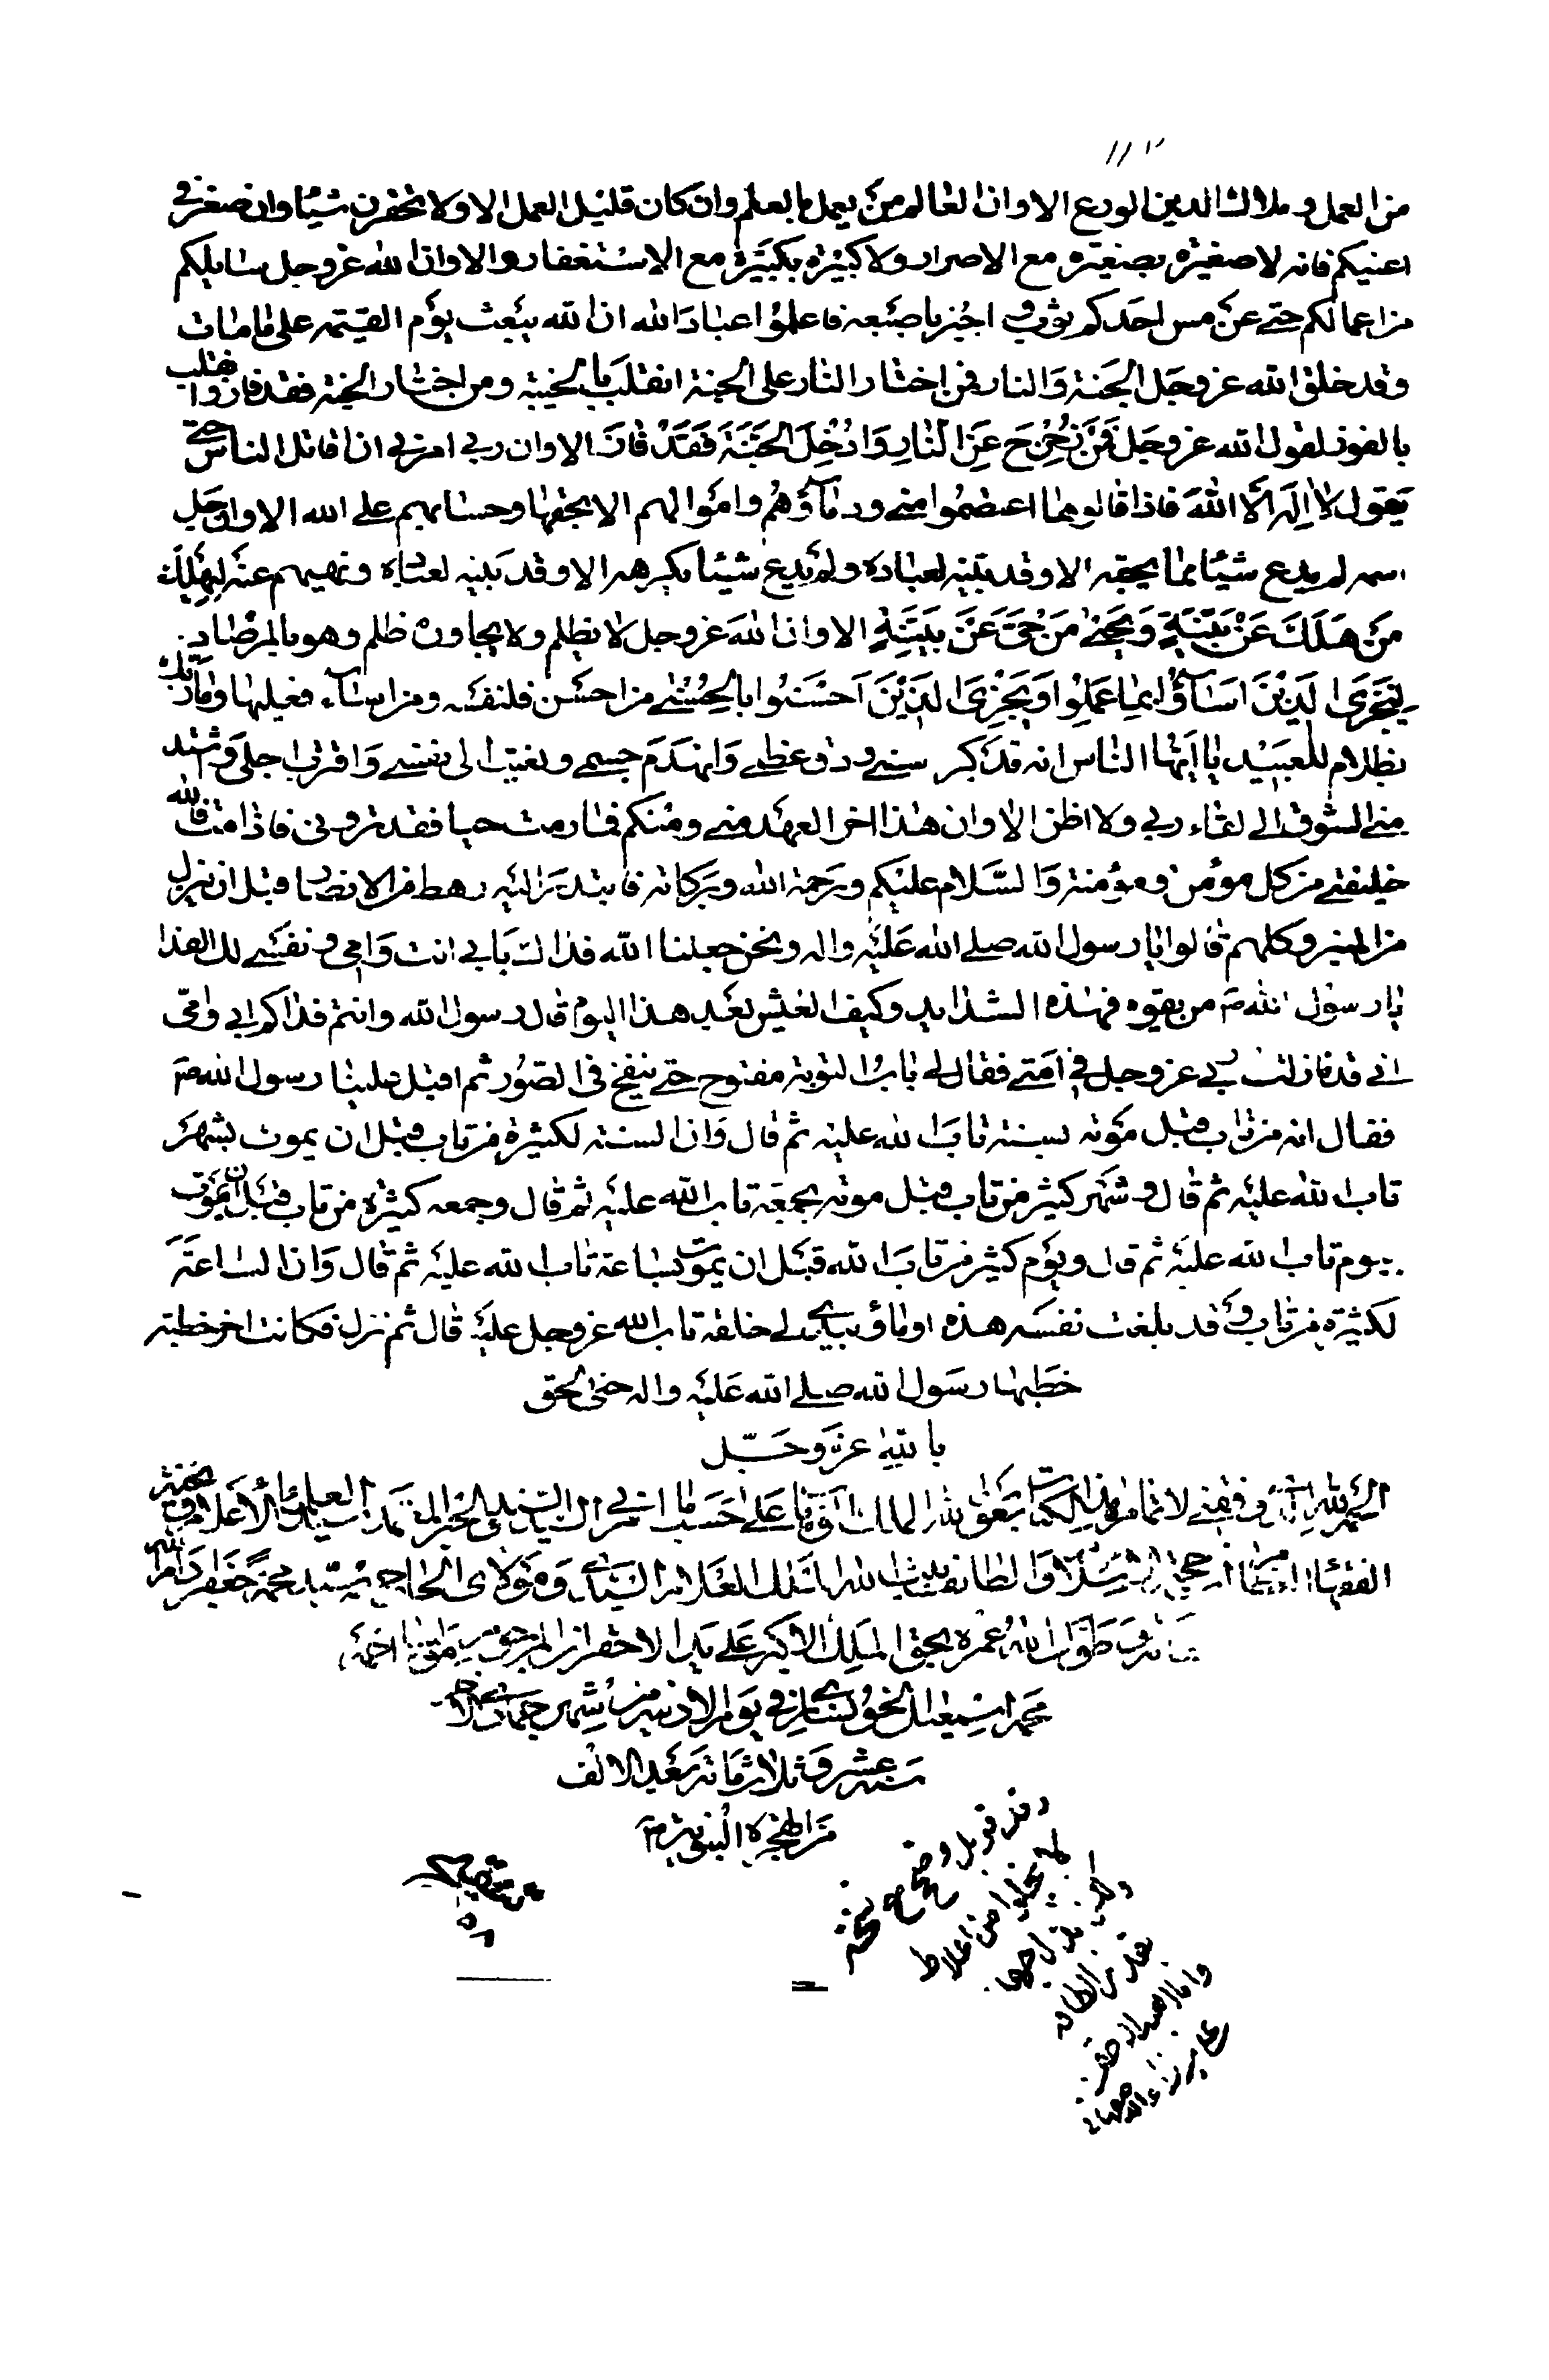 من العمل و ملاك الدين الورع الا وان العالم من يعمل بالعلم وان كان قليل العمل الا ولا تحقرن شيئا وان صغر في
اعينكم فانه لا صغيرة بصغيرة مع الاصرار ولا كبيرة بكبيرة مع الاستغفار والا وان الله عز وجل سايلكم
من اعمالكم حتى عن مس احدكم ثوب اخيه باصبعه فاعلموا عباد الله ان الله يبعث يوم القيمة على ما مات
وقد خلق الله عز وجل الجنة والنار فمن اختار النار على الجنة انقلب بالخيبة ومن اختار الجنة فقد فاز وانقلب
بالفوز لقول الله عز وجل فمن زحزح عن النار وادخل الجنة فقد فاز الا وان ربي امرني ان اقاتل الناس حتى
يقول لا اله الا الله فاذا قالوهما اعتصموا مني ودماؤهم واموالهم الا بحقها وحسابهم على الله الا وان جل
اسمه لم يدع شيئا مما يحبه الا وقد بينه لعباده ولم يدع شيئا يكرهه الا وقد بينه لعباده ونهيهم عنه ليهلك
من هلك عن بينة ويحيى من حي عن بينة الا وان الله عز وجل لا يظلم ولا يجاوزه ظلم وهو بالمرصاد
ليجزى الذين اساؤا بما عملوا ويجزى الذين احسنوا بالحسنى من احسن فلنفسه ومن اساء فعليها وما ربك
بظلام للعبيد يا ايها الناس انه قد كبر سني ودق عظمي وانهدم جسمي ونعيت الى نفسي واقترب اجلي واشتد
مني الشوق الى لقاء ربي ولا اظن الا وان هذا اخر العهد مني ومنكم فما دمت حيا فقد تروني فاذا مت فالله
خليفتي من كل مؤمن ومؤمنة والسلام عليكم ورحمة الله وبركاته فابتدر اليه رهط من الانصار قبل ان ينزل
من المنبر وكلهم قالوا يا رسول الله صلى الله عليه واله ونحن جعلنا الله فداك بابي انت وامي ونفسي لك الفدا
يا رسول الله ص من يقوم لهذه الشدايد وكيف العيش بعد هذا اليوم قال رسول الله وانتم فداكم ابي وامي
اني قد نازلت ربي عز وجل في امتي فقال لي باب التوبة مفتوح حتى ينفخ في الصور ثم اقبل علينا رسول الله ص
فقال انه من تاب قبل موته بسنة تاب الله عليه ثم قال وان السنة لكثيرة من تاب قبل ان يموت بشهر
تاب الله عليه ثم قال وشهر كثير من تاب قبل موته بجمعة تاب الله عليه ثم قال وجمعه كثيرة من تاب قبل ان يموت
بيوم تاب الله عليه ثم قال ويوم كثير من تاب الله قبل ان يموت بساعة تاب الله عليه ثم قال وان الساعة
لكثيرة من تاب وقد بلغت نفسه هذه اوما بيده الى حلقه تاب الله عز وجل عليه قال ثم نزل فكانت اخر خطبة
خطبها رسول الله صلى الله عليه واله حتى الحق
بالله عز وجل
الحمد لله وفقني لاتمام هذا الكتاب بعون الله الملك على حسب ما امرني السيد العلماء الاعلام
الفقهاء السيد ومولاي الحاج سيد محمد جعفر دام الله
طول الله عمره بحق الملك الاكبر على يد الاحقر
محمد اسمعيل الخونساري في يوم من شهر جمادى
سنه عشر و ثلاثمائة بعد الالف
من الهجرة النبوية ص
قد قوبل وصحح نسخه
من اغلاط